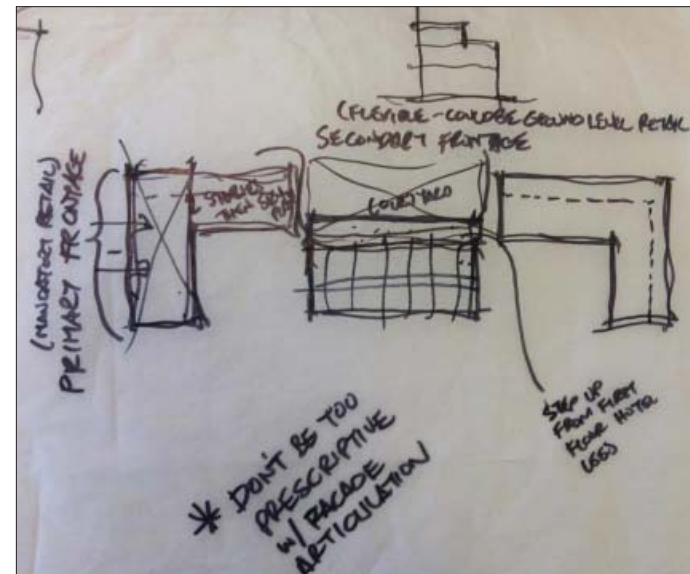 (FLEXIBLE - COULD BE GROUND LEVEL RETAIL
SECONDARY FRONTAGE
(MANDATORY RETAIL)
PRIMARY FRONTAGE
2 STORIES
THEN STEP
COURTYARD
STEP UP
FROM FIRST
FLOOR HOTEL
USES
* DON'T BE TOO
PRESCRIPTIVE
W/ FACADE
ARTICULATION